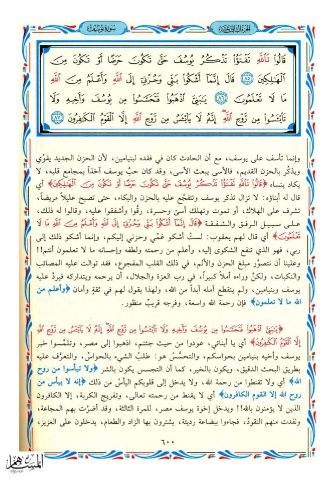 الجزء الثالث عشر
سورة يوسف
قَالُوا تَاللَّهِ تَفْتَؤُا تَذْكُرُ يُوسُفَ حَتَّى تَكُونَ حَرَضًا أَوْ تَكُونَ مِنَ
الْهَالِكِينَ ٨٥ قَالَ إِنَّمَا أَشْكُوا بَثِّي وَحُزْنِي إِلَى اللَّهِ وَأَعْلَمُ مِنَ اللَّهِ
مَا لَا تَعْلَمُونَ ٨٦ يَبَنِيَّ اذْهَبُوا فَتَحَسَّسُوا مِن يُوسُفَ وَأَخِيهِ وَلَا
تَايْئَسُوا مِن رَّوْحِ اللَّهِ إِنَّهُ لَا يَايْئَسُ مِن رَّوْحِ اللَّهِ إِلَّا الْقَوْمُ الْكَافِرُونَ ٨٧
وإنما تأسف على يوسف، مع أن الحادث كان في فقده لبنيامين، لأن الحزن الجديد يقوّي
ويذكّر بالحزن القديم، فالأسى يبعث الأسى، وقد كان حبّ يوسف آخذاً بمجامع قلبه، لا
يكاد ينساه ﴿قَالُوا تَاللَّهِ تَفْتَؤُا تَذْكُرُ يُوسُفَ حَتَّى تَكُونَ حَرَضًا أَوْ تَكُونَ مِنَ الْهَالِكِينَ﴾ أي
قال له أبناؤه: لا تزال تذكر يوسف وتتفجّع عليه بالحزن والبكاء، حتى تصبح عليلاً مريضاً،
تشرف على الهلاك، أو تموت وتهلك أسىً وحسرة، رقّوا وأشفقوا عليه، وقالوا له ذلك،
على سبيل الرفق والشفقة ﴿قَالَ إِنَّمَا أَشْكُوا بَثِّي وَحُزْنِي إِلَى اللَّهِ وَأَعْلَمُ مِنَ اللَّهِ مَا لَا
تَعْلَمُونَ﴾ أي قال لهم يعقوب: لست أشكو غمّي وحزني إليكم، وإنما أشكو ذلك إلى
ربي، فهو الذي تنفع الشكوى إليه، وأعلم من رحمته ولطفه وإحسانه ما لا تعلمون أنتم!!
وعلينا أن نتصوّر مبلغ الحزن والألم، في ذلك القلب المفجوع، فقد توالت عليه المصائب
والنكبات، ولكنّ وراءه أملاً كبيراً، في رب العزة والجلال، أن يرحمه ويتداركه فيردّ عليه
يوسف وبنيامين، ولم ينقطع أمله أبداً من الله، ولهذا يقول لهم في ثقةٍ وأمان ﴿وأعلم من
الله ما لا تعلمون﴾ فإن رحمة الله واسعة، وفرجه قريبٌ منظور.
﴿يَبَنِيَّ اذْهَبُوا فَتَحَسَّسُوا مِن يُوسُفَ وَأَخِيهِ وَلَا تَايْئَسُوا مِن رَّوْحِ اللَّهِ إِنَّهُ لَا يَايْئَسُ مِن رَّوْحِ اللَّهِ
إِلَّا الْقَوْمُ الْكَافِرُونَ﴾ أي يا أبنائي، عودوا من حيث جئتم، اذهبوا إلى مصر، وتلمَّسوا خبر
يوسف وأخيه بنيامين بحواسكم، والتحسُّسُ هو: طلب الشيء بالحواسّ، والتعرُّف عليه
بطريق البحث الدقيق، ويكون بالخير، كما أن التجسس يكون بالشر ﴿ولا تيأسوا من روح
الله﴾ أي ولا تقنطوا من رحمة الله، ولا يدخل إلى قلوبكم اليأسُ من ذلك ﴿إنه لا ييأس من
روح الله إلا القوم الكافرون﴾ أي لا يقنط من رحمته تعالى، وتفريج الكربة، إلا الكافرون
الذين لا يؤمنون بالله!! ويدخل إخوة يوسف مصر، للمرة الثالثة، وقد أضرَّت بهم المجاعة،
ونفدت منهم النقودُ، فجاءوا ببضاعة رديئة، يشترون بها الزاد والطعام، يدخلون على العزيز،
٦٠٠